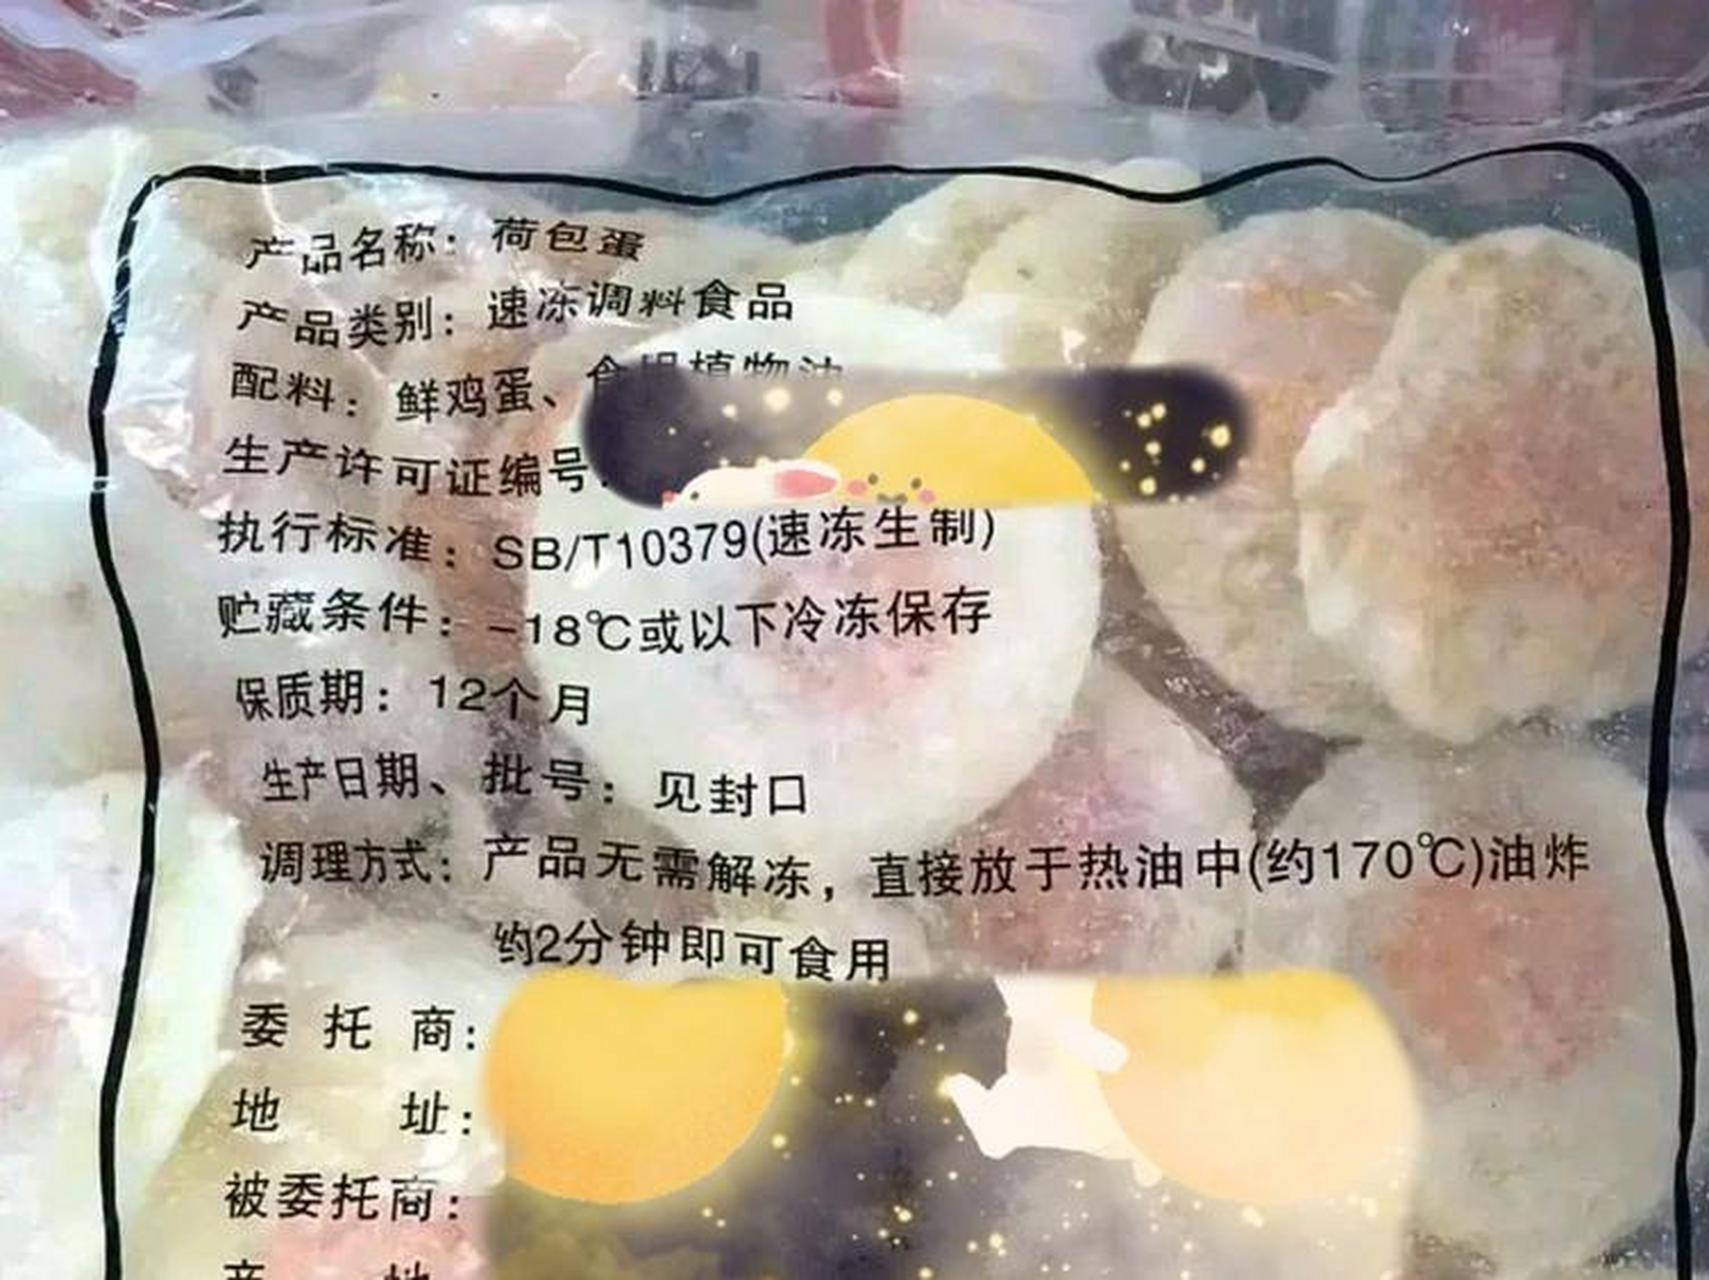 产品名称：荷包蛋
产品类别：速冻调料食品
配料：鲜鸡蛋、食用植物油
生产许可证编号：
执行标准：SB/T10379(速冻生制)
贮藏条件：-18℃或以下冷冻保存
保质期：12个月
生产日期、批号：见封口
调理方式：产品无需解冻，直接放于热油中(约170℃)油炸
约2分钟即可食用
委托商：
地址：
被委托商：
产地